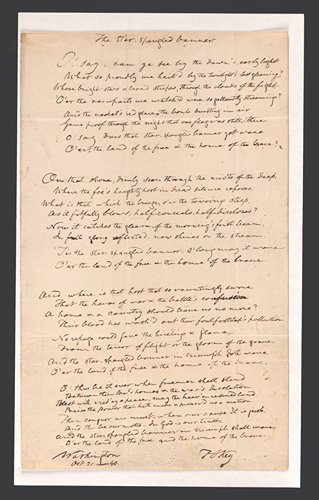 The Star-spangled banner.
O! say, can ye see by the dawn's early light
What so proudly we hail'd by the twilight's last gleaming?
Whose bright stars & broad stripes, through the clouds of the fight,
O'er the ramparts we watched were so gallantly streaming?
And the rocket's red glare, the bomb bursting in air
Gave proof through the night that our flag was still there
O say, does that star-spangled banner yet wave
O'er the land of the free & the home of the brave?
On that shore, dimly seen through the mists of the deep,
Where the foe's haughty host in dread silence reposes
What is that which the breeze, o'er the towering steep,
As it fitfully blows, half conceals, half discloses?
Now it catches the gleam of the morning's first beam,
In full glory reflected, now shines on the stream.
'Tis the star-spangled banner, O long may it wave
O'er the land of the free & the home of the brave.
And where is that host that so vauntingly swore
That the havoc of war & the battle's confusion
A home & a country should leave us no more?
Their blood has wash'd out their foul footstep's pollution
No refuge could save the hireling & slave
From the terror of flight or the gloom of the grave
And the star-spangled banner in triumph doth wave
O'er the land of the free & the home of the brave.
O! thus be it ever when freemen shall stand
Between their lov'd homes & the war's desolation
Blest with vict'ry & peace, may the heav'n-rescued land
Praise the power that hath made & preserved us a nation
Then conquer we must, when our cause it is just,
And this be our motto, In God is our trust
And the star-spangled banner in triumph shall wave
O'er the land of the free and the home of the brave.
Washington
Oct 21 - 40
F S Key